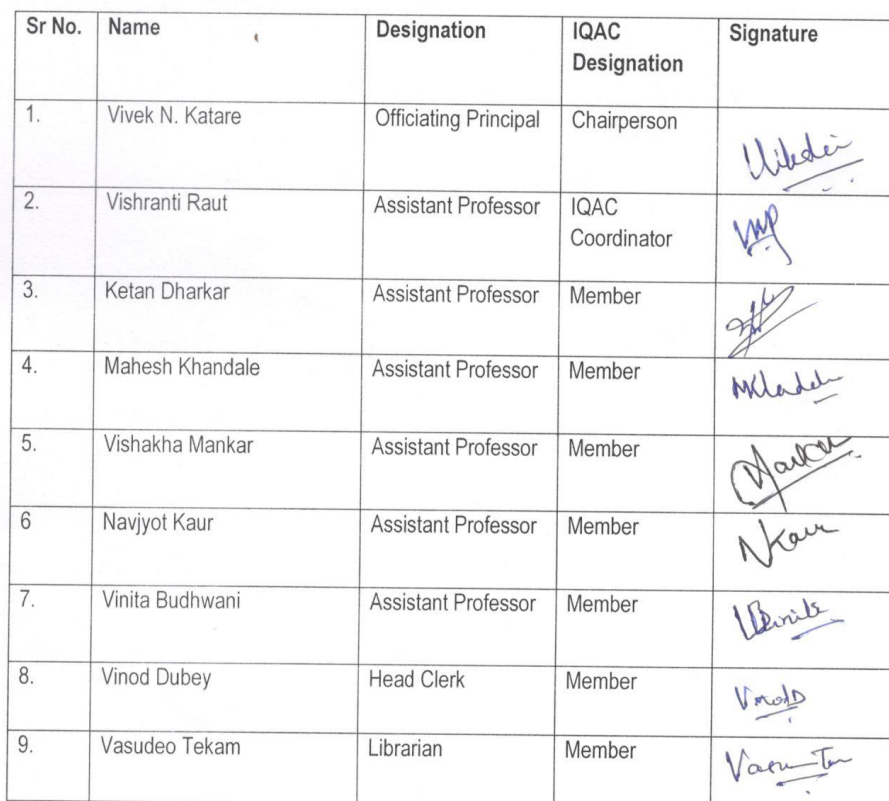 Sr No. Name Designation IQAC Designation Signature
1. Vivek N. Katare Officiating Principal Chairperson
2. Vishranti Raut Assistant Professor IQAC Coordinator
3. Ketan Dharkar Assistant Professor Member
4. Mahesh Khandale Assistant Professor Member
5. Vishakha Mankar Assistant Professor Member
6 Navjyot Kaur Assistant Professor Member NKaur
7. Vinita Budhwani Assistant Professor Member
8. Vinod Dubey Head Clerk Member VinodD
9. Vasudeo Tekam Librarian Member